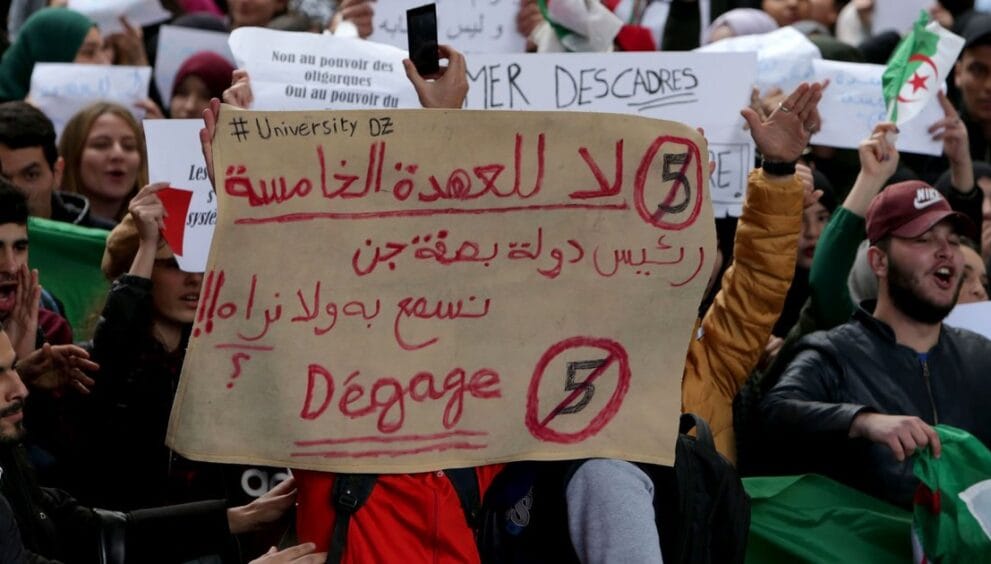 Non au pouvoir des
oligarques
Oui au pouvoir du
MER DES CADRES
#University DZ
لا للعهدة الخامسة 5
رئيس دولة بصفة جن
نسمع به ولا نراه!!
؟
Dégage 5
Les
s
système
RE!
NIKE